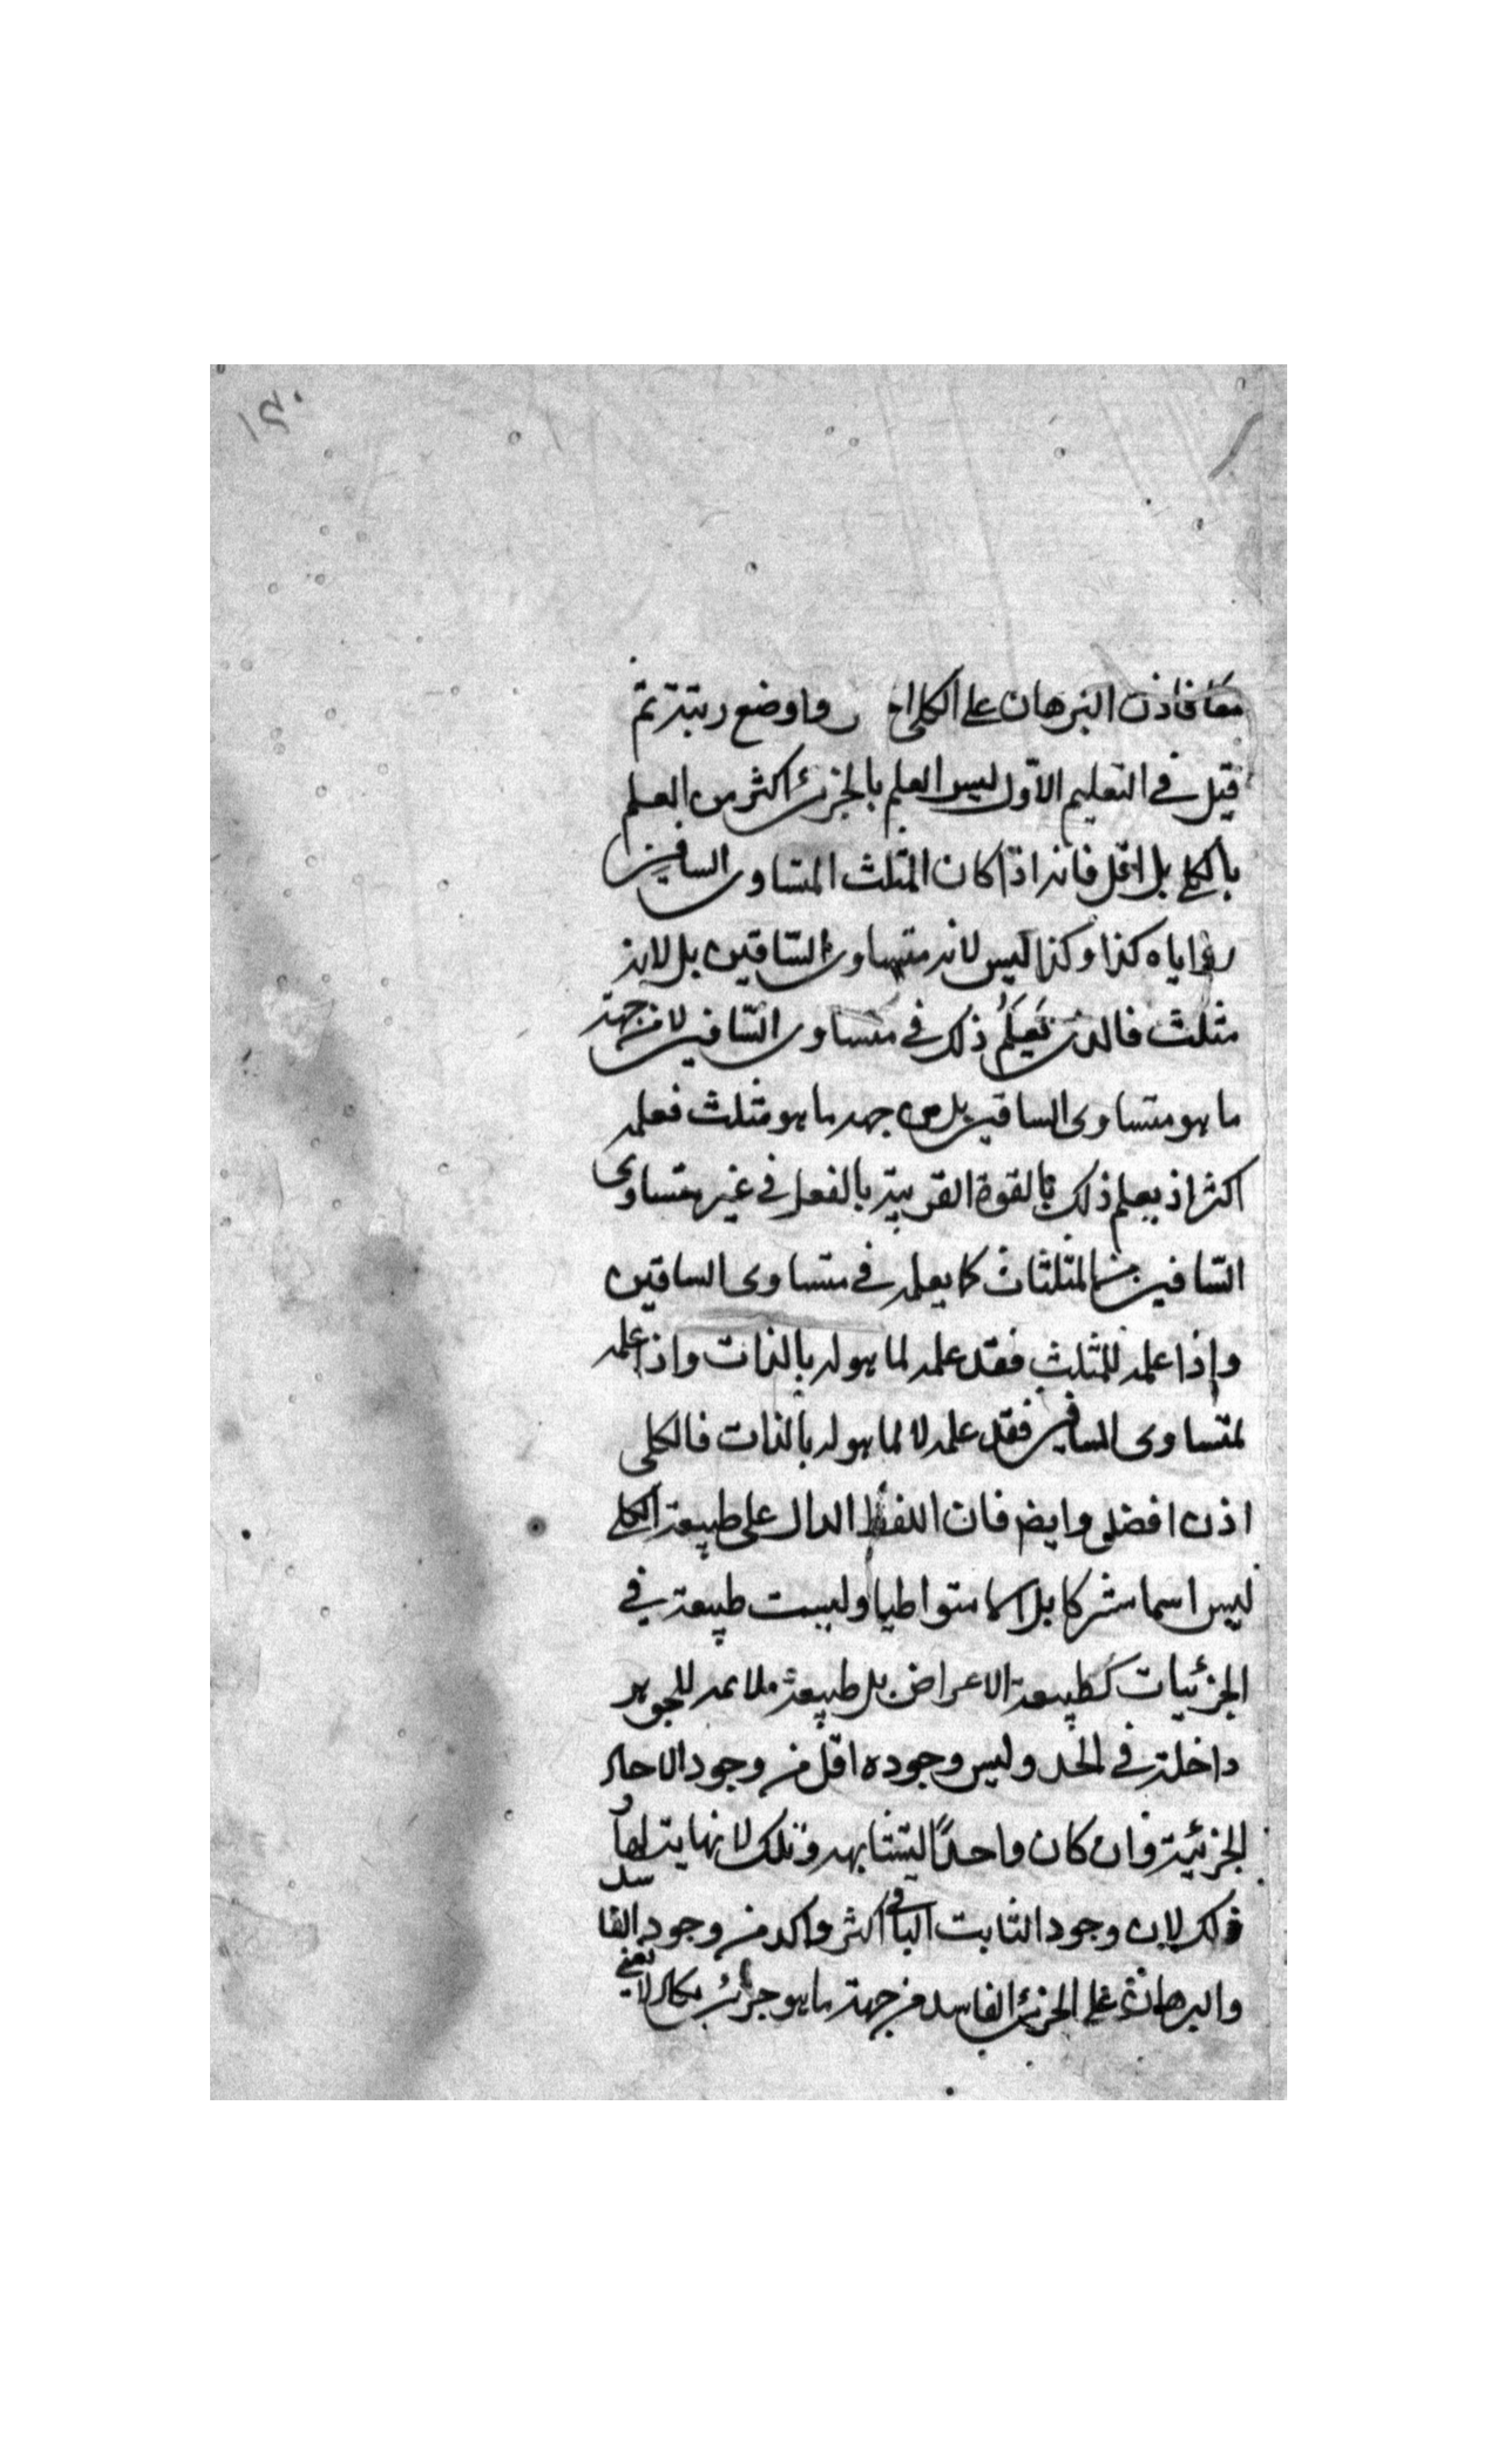 ١٣٠
معا فاذن البرهان على الكلى اخ ر واوضع رتبة ثم
قيل في التعليم الاول ليس العلم بالجزئى اكثر من العلم
بالكلى بل اقل فانه اذا كان المثلث المتساوى الساقين
زواياه كذا وكذا ليس لانه متساوى الساقين بل لانه
مثلث فالذى يعلم ذلك في متساوى الساقين لا من جهة
ما هو متساوى الساقين بل من جهة ما هو مثلث فعلمه
اكثر اذ يعلم ذلك بالقوة القريبة بالفعل في غير متساوى
الساقين من المثلثات كما يعلمه في متساوى الساقين
واذا علمه للمثلث فقد علمه لما هو له بالذات واذا علمه
لمتساوى الساقين فقد علمه لا لما هو له بالذات فالكلى
اذن افضل وايضا فان اللفظ الدال على طبيعة الكلى
ليس اسما مشتركا بل اسما متواطيا وليست طبيعة في
الجزئيات كطبيعة الاعراض بل طبيعة ملائمه للجوهر
داخلة في الحد وليس وجوده اقل من وجود الاحاد
الجزئية وان كان واحدًا ليتشابهه وتلك لا نهاية لها و
ذلك لان وجود الثابت الباقى اكثر واكد من وجود الفاسد
والبرهان على الجزئى الفاسد من جهة ما هو جزئى لا يعنى